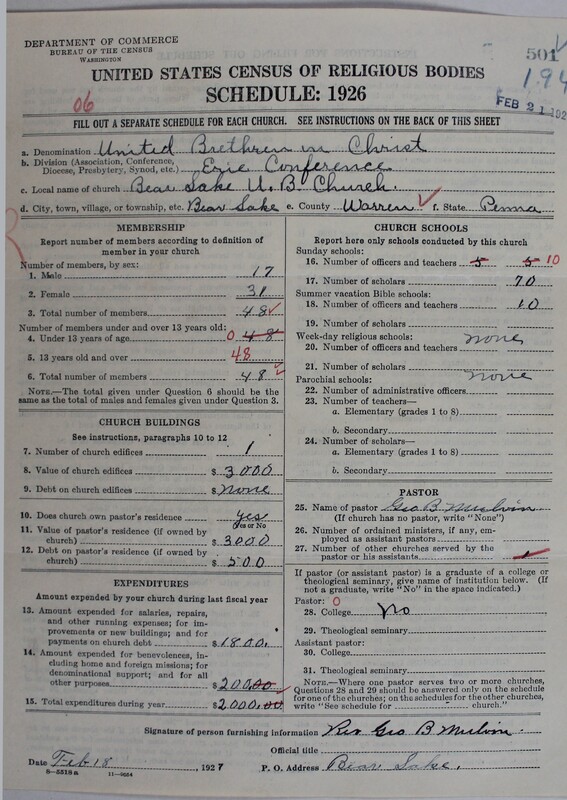 DEPARTMENT OF COMMERCE
BUREAU OF THE CENSUS
WASHINGTON
501
194
FEB 21 192
UNITED STATES CENSUS OF RELIGIOUS BODIES
SCHEDULE: 1926
06
FILL OUT A SEPARATE SCHEDULE FOR EACH CHURCH. SEE INSTRUCTIONS ON THE BACK OF THIS SHEET
a. Denomination United Brethren in Christ
b. Division (Association, Conference, Diocese, Presbytery, Synod, etc.) Erie Conference
c. Local name of church Bear Lake U. B. Church.
d. City, town, village, or township, etc. Bear Lake e. County Warren f. State Penna
MEMBERSHIP
Report number of members according to definition of
member in your church
Number of members, by sex:
1. Male 17
2. Female 31
3. Total number of members 48
Number of members under and over 13 years old:
4. Under 13 years of age 0 48
5. 13 years old and over 48
6. Total number of members 48
NOTE.—The total given under Question 6 should be
the same as the total of males and females given under Question 3.
CHURCH BUILDINGS
See instructions, paragraphs 10 to 12
7. Number of church edifices 1
8. Value of church edifices $3000
9. Debt on church edifices $none
10. Does church own pastor's residence yes
Yes or No
11. Value of pastor's residence (if owned by
church) $3000
12. Debt on pastor's residence (if owned by
church) $500
EXPENDITURES
Amount expended by your church during last fiscal year
13. Amount expended for salaries, repairs,
and other running expenses; for im-
provements or new buildings; and for
payments on church debt $1800.
14. Amount expended for benevolences, in-
cluding home and foreign missions; for
denominational support; and for all
other purposes $200.00
15. Total expenditures during year $2000.00
CHURCH SCHOOLS
Report here only schools conducted by this church
Sunday schools:
16. Number of officers and teachers 5 5 10
17. Number of scholars 70
Summer vacation Bible schools:
18. Number of officers and teachers 10
19. Number of scholars
Week-day religious schools: none
20. Number of officers and teachers
21. Number of scholars
Parochial schools: none
22. Number of administrative officers
23. Number of teachers—
a. Elementary (grades 1 to 8)
b. Secondary
24. Number of scholars—
a. Elementary (grades 1 to 8)
b. Secondary
PASTOR
25. Name of pastor Geo B. Mulvin
(If church has no pastor, write "None")
26. Number of ordained ministers, if any, em-
ployed as assistant pastors
27. Number of other churches served by the
pastor or his assistants
If pastor (or assistant pastor) is a graduate of a college or
theological seminary, give name of institution below. (If
not a graduate, write "No" in the space indicated.)
Pastor: 0
28. College No
29. Theological seminary
Assistant pastor:
30. College
31. Theological seminary
NOTE.—Where one pastor serves two or more churches,
Questions 28 and 29 should be answered only on the schedule
for one of the churches; on the schedules for the other churches,
write "See schedule for church."
Signature of person furnishing information Rev Geo B Mulvin.
Official title
Date Feb 18, 1927 P. O. Address Bear Lake,
8—5518a 11—9684